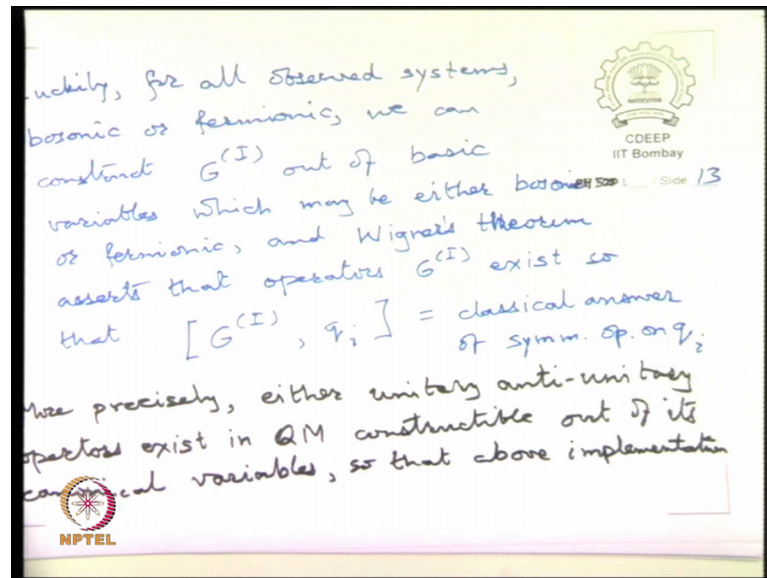 uckily, for all observed systems,
bosonic or fermionic, we can
construct G^(I) out of basic
variables which may be either bosonic
or fermionic, and Wigner's theorem
asserts that operators G^(I) exist so
that [G^(I), q_i] = classical answer
of symm. op. on q_i
More precisely, either unitary anti-unitary
opertors exist in QM constructible out of its
canonical variables, so that above implementation
CDEEP
IIT Bombay
Slide 13
NPTEL